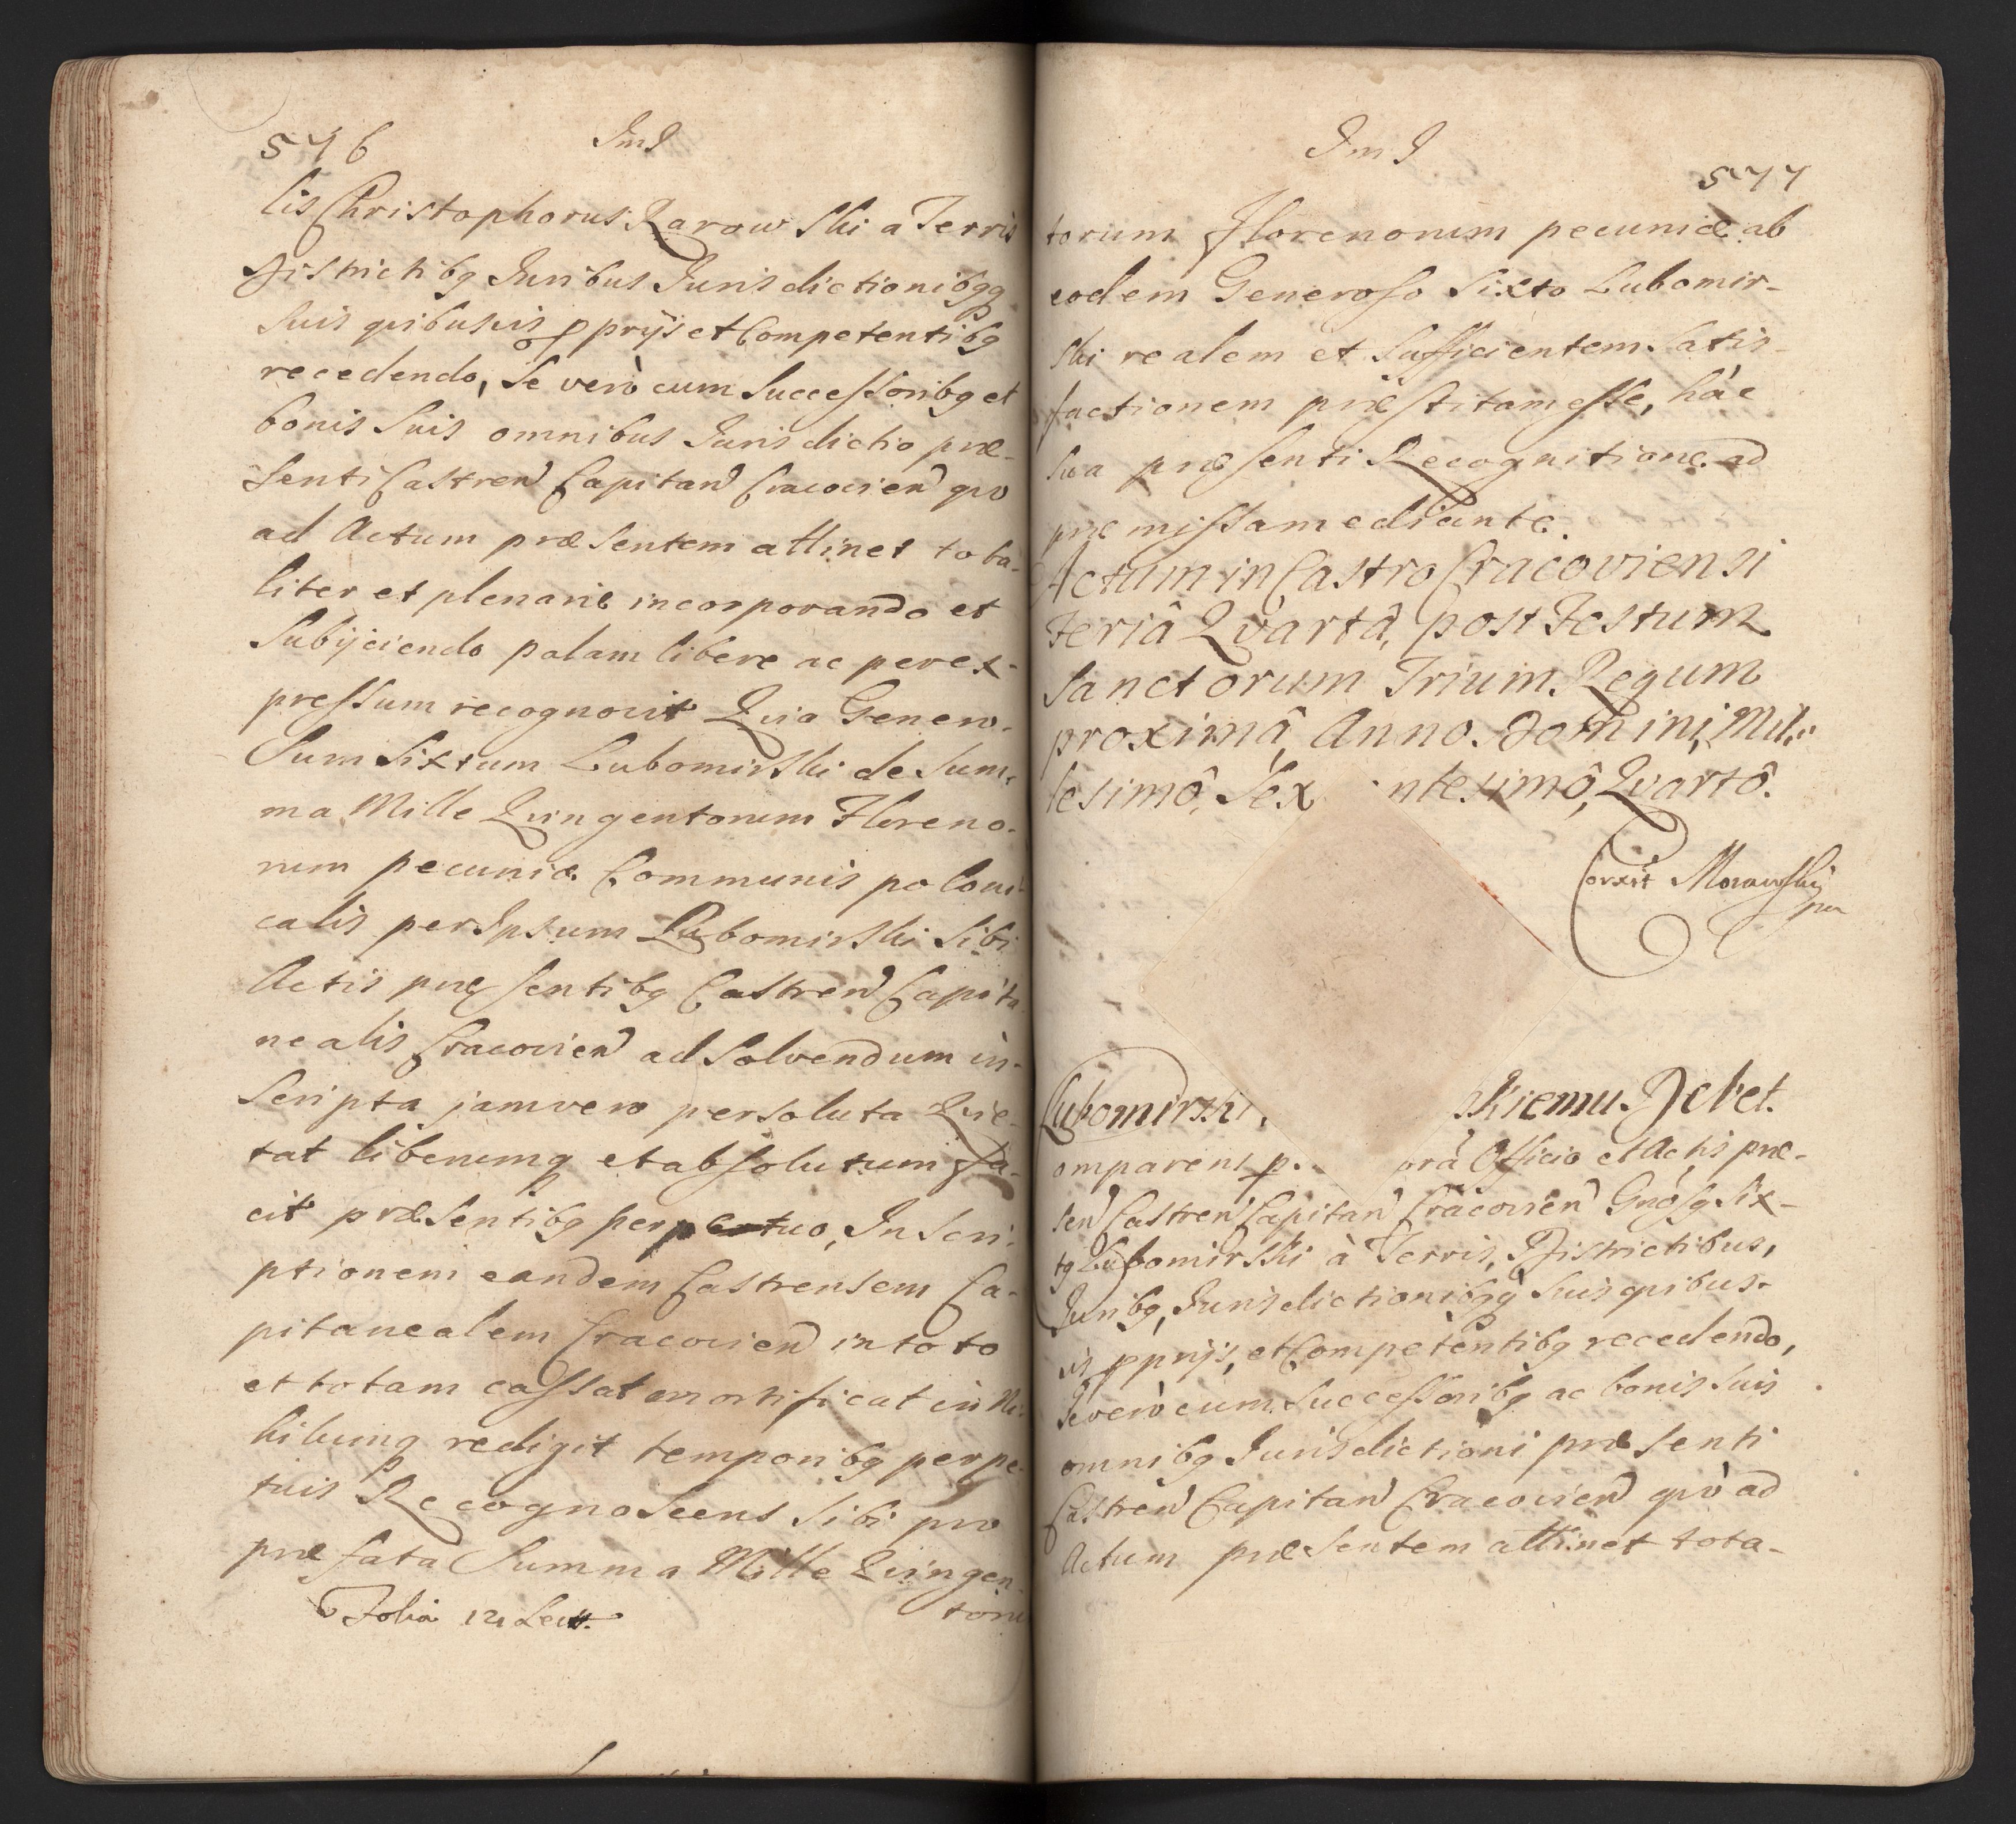 576
ImI
lis Christophorus Karowski a Terris
Districtibq Juribus Jurisdictionibqq
suis quibusvis pprijs et Competentibq
recedendo, Se verò cum Successoribq et
bonis Suis omnibus Jurisdictio præ-
senti Castren Capitan Cracovien quo
ad Actum præsentem attinet tota-
liter et plenarie incorporando et
Subijciendo palam libere ac perex-
pressum recognovit Quia Genero-
Sum Sixtum Lubomirski de Sum-
ma Mille Quingentorum Floreno-
rum pecuniæ Communis poloni-
calis per Ipsum Lubomirski Sibi
Actis præsentibq Castren Capita-
nealis Cracovien ad Solvendum in-
Scripta jamvero persoluta Quie-
tat liberumq et absolutum fa-
cit præsentibq perpetuo, Inscri-
ptionem eandem Castrensem Ca-
pitanealem Cracovien in toto
et totam cassat mortificat in Ni-
hilumq redigit temporibq perpe-
tuis Recognoscens Sibi pro
præfata Summa Mille Quingen-
Folia 12
toru
ImI
577
torum Florenorum pecuniæ ab
eodem Generoso Sixto Lubomir-
ski realem et Sufficientem Satis-
factionem præstitam esse, hác
sua præsenti Recognitione ad
præmissa mediante.
Actum in Castro Cracoviensi
Feriâ Quartâ, post Festum
Sanctorum Trium Regum
proximâ, Anno Domini, Mil-
lesimô, Sex ntesimô, Quartô.
Corxit Morawski
mp
Lubomirski, skiemu Debet.
omparens p. orà Officio et Actis præ-
sen Castren Capitan Cracovien Gnosq Six-
tq Lubomirski à Terris, Districtibus,
Juribq, Jurisdictionibqq suis quibus-
vis pprijs, et Competentibq recedendo,
Se verò cum Successoribq ac bonis suis
omnibq Jurisdictioni præsenti
Castren Capitan Cracovien quò ad
Actum præsentem attinet tota-